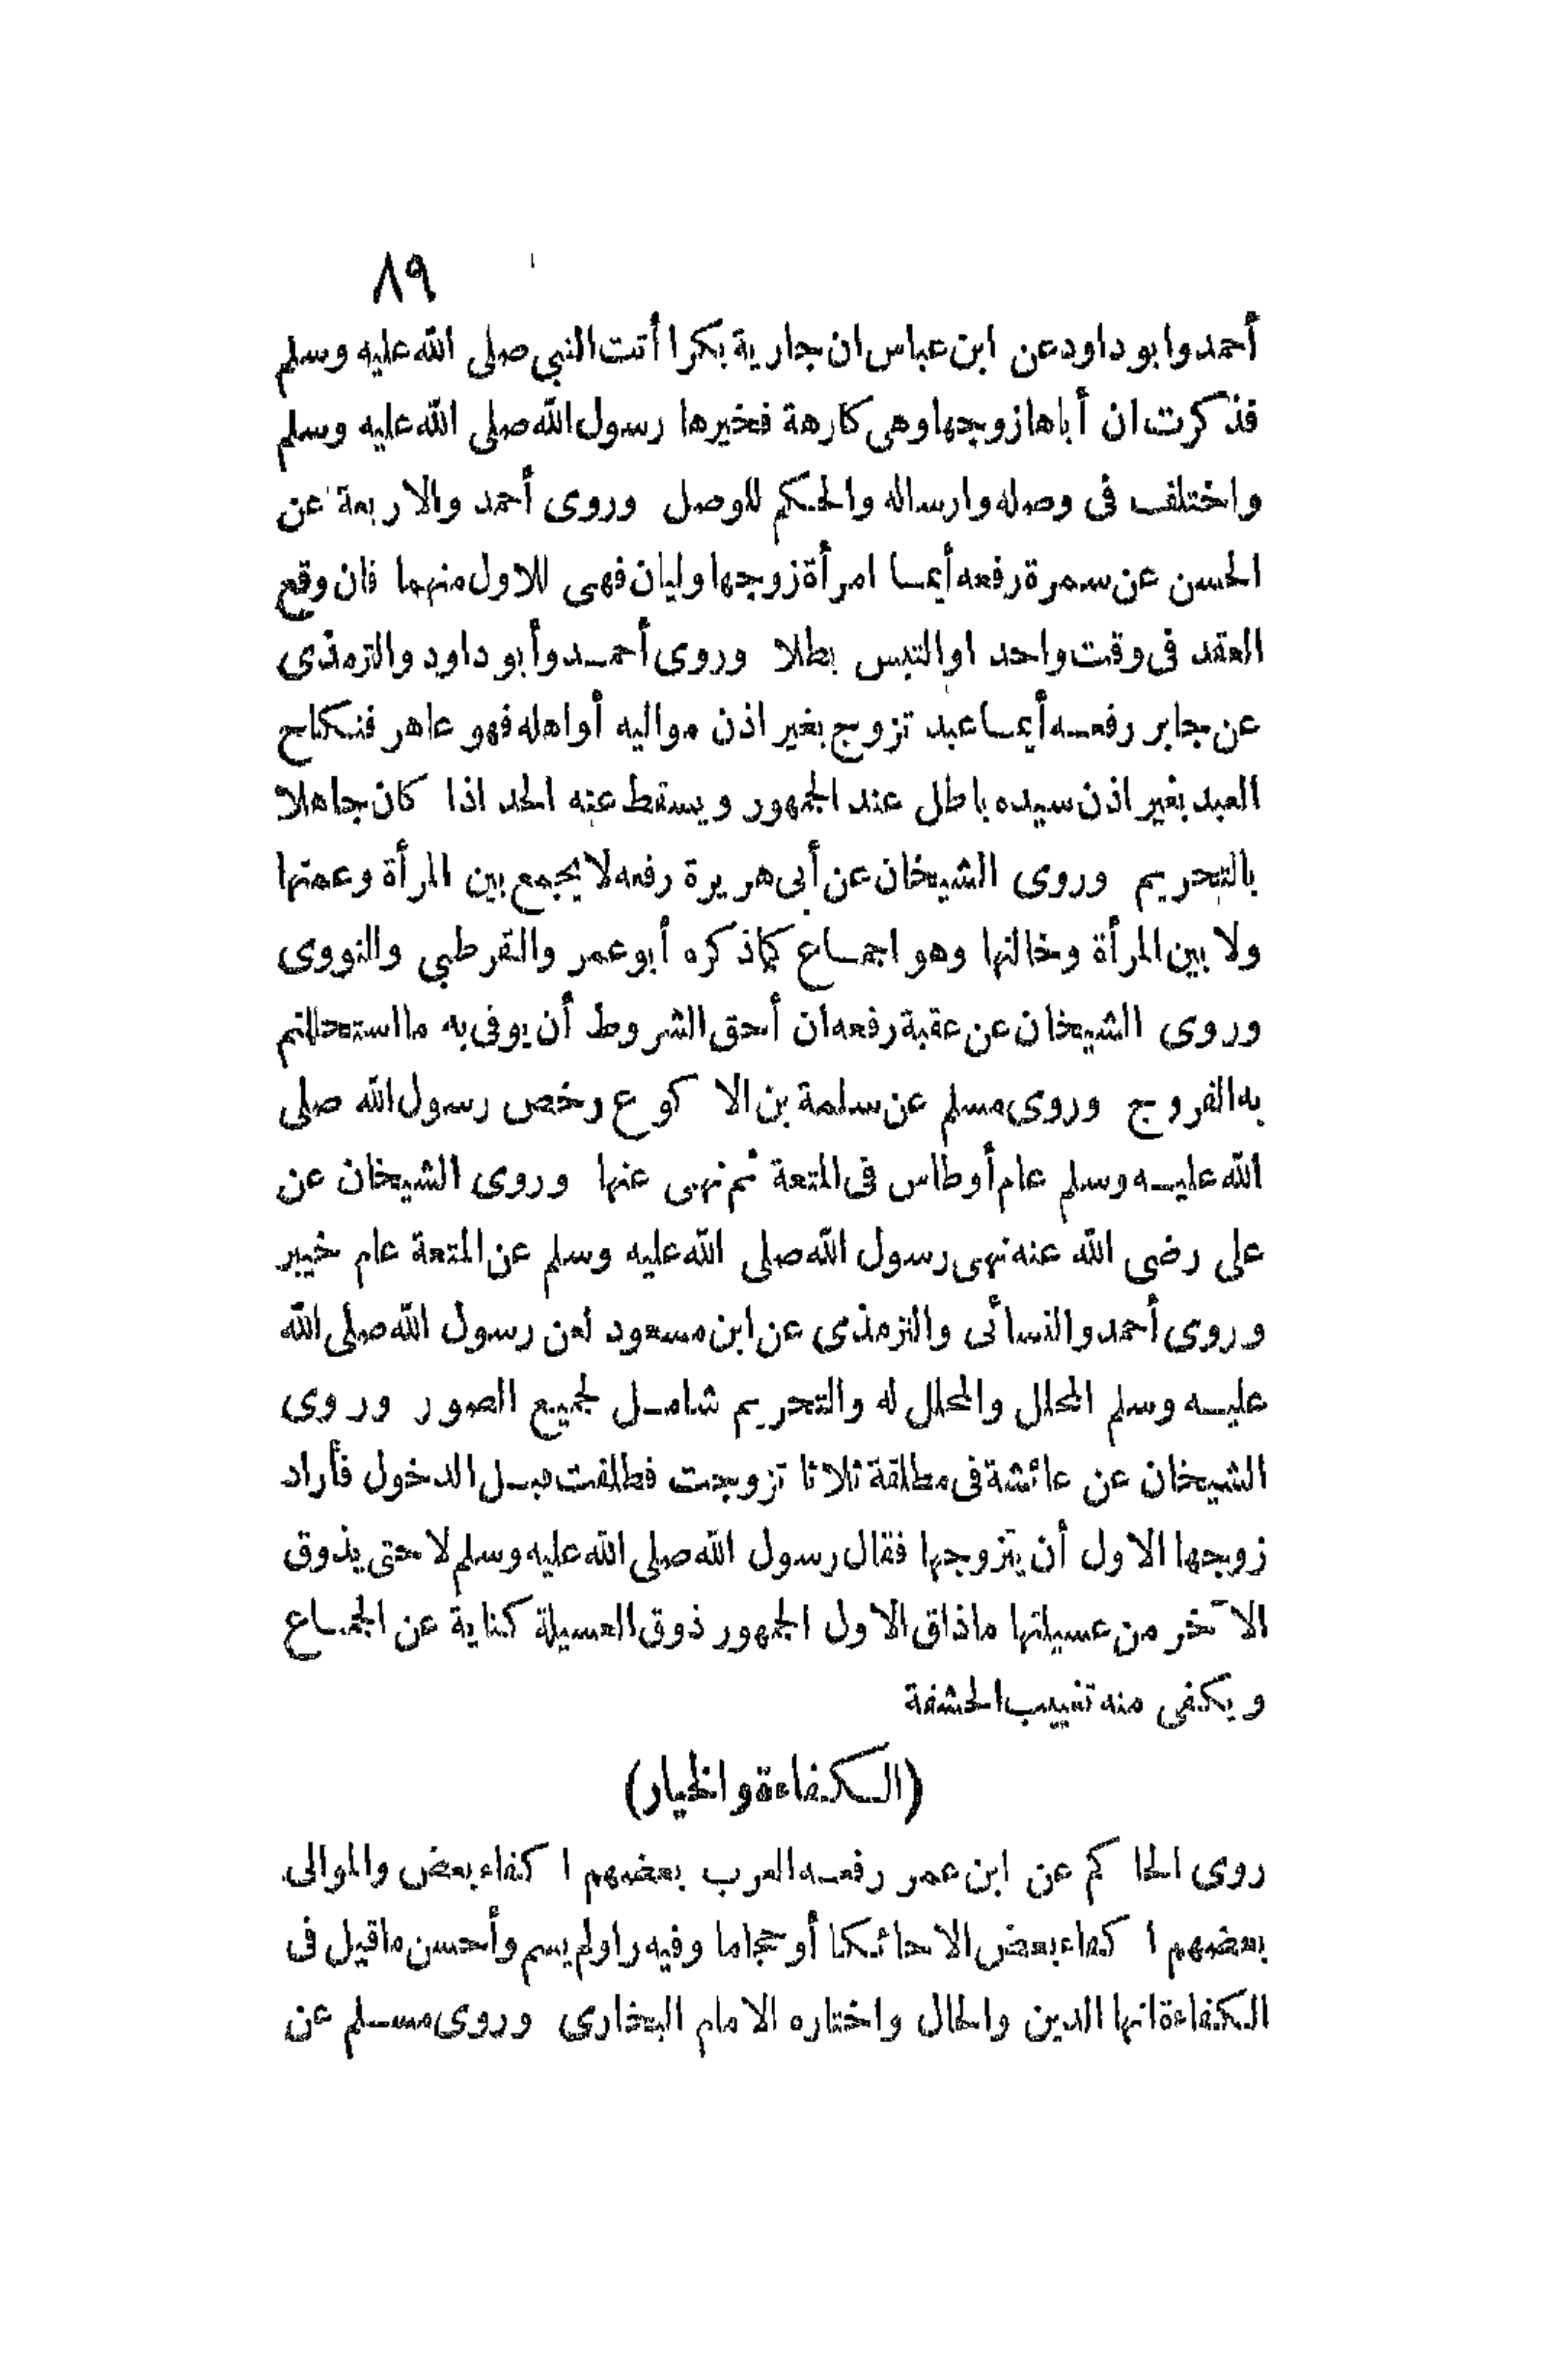 ٨٩
أحمد وابو داود عن ابن عباس ان جارية بكرا أتت النبي صلى الله عليه وسلم
فذكرت ان أباها زوجها وهى كارهة فخيرها رسول الله صلى الله عليه وسلم
واختلف فى وصله وارساله والحكم للوصل وروى أحمد والاربعة عن
الحسن عن سمرة رفعه أيما امرأة زوجها وليان فهى للاول منهما فان وقع
العقد فى وقت واحد او التبس بطلا وروى أحمد وأبو داود والترمذى
عن جابر رفعه أيما عبد تزوج بغير اذن مواليه أو اهله فهو عاهر فنكاح
العبد بغير اذن سيده باطل عند الجمهور ويسقط عنه الحد اذا كان جاهلا
بالتحريم وروى الشيخان عن أبى هريرة رفعه لا يجمع بين المرأة وعمتها
ولا بين المرأة وخالتها وهو اجماع كماذكره أبو عمر والقرطبي والنووى
وروى الشيخان عن عقبة رفعه ان أحق الشروط أن يوفى به ما استحللتم
به الفروج وروى مسلم عن سلمة بن الاكوع رخص رسول الله صلى
الله عليه وسلم عام أوطاس فى المتعة ثم نهى عنها وروى الشيخان عن
على رضى الله عنه نهى رسول الله صلى الله عليه وسلم عن المتعة عام خيبر
وروى أحمد والنسائى والترمذى عن ابن مسعود لعن رسول الله صلى الله
عليه وسلم المحلل والمحلل له والتحريم شامل لجميع الصور وروى
الشيخان عن عائشة فى مطلقة ثلاثا تزوجت فطلقت قبل الدخول فأراد
زوجها الاول أن يتزوجها فقال رسول الله صلى الله عليه وسلم لا حتى يذوق
الآخر من عسيلتها ماذاق الاول الجمهور ذوق العسيلة كناية عن الجماع
ويكفى منه تغييب الحشفة
(الكفاءة والخيار)
روى الحاكم عن ابن عمر رفعه العرب بعضهم اكفاء بعض والموالى
بعضهم اكفاء بعض الا حائكا أو حجاما وفيه راو لم يسم وأحسن ما قيل فى
الكفاءة انها الدين والحال واختاره الامام البخارى وروى مسلم عن